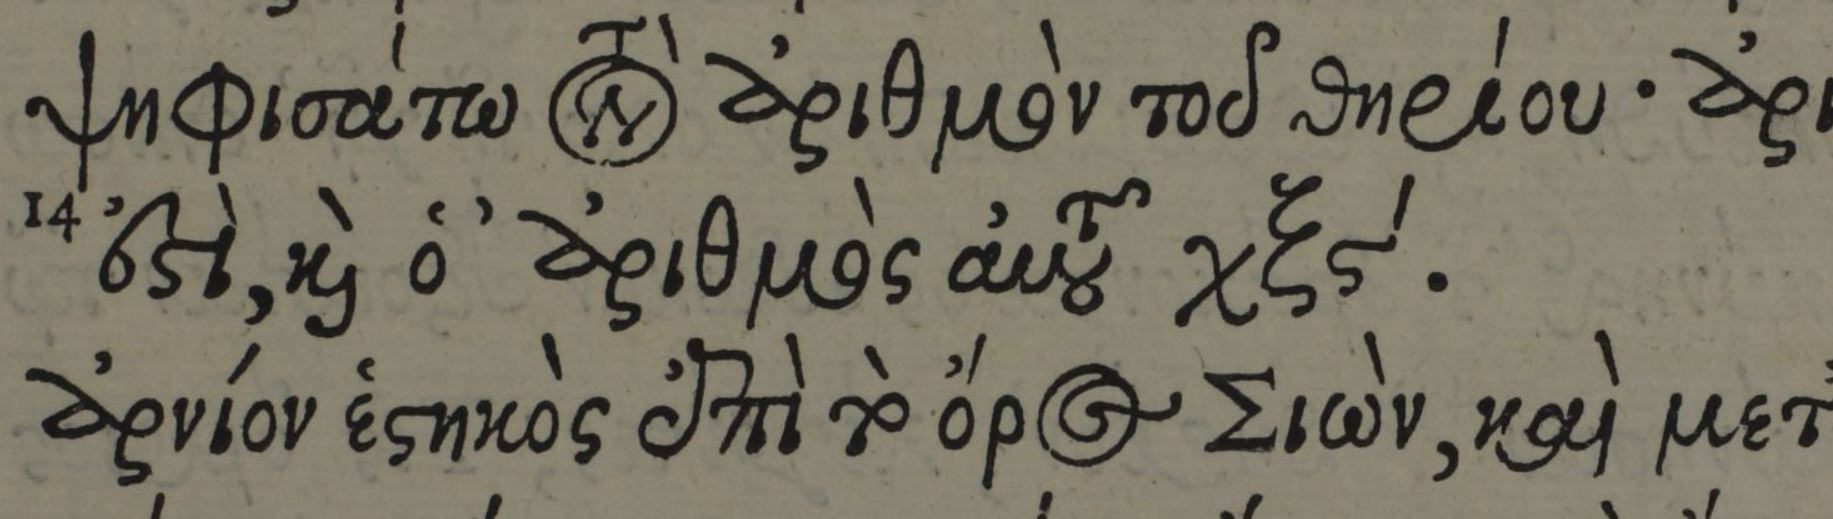 ψηφισάτω τὸν ἀριθμὸν τοῦ θηρίου· ἀρι
14 ἐστὶ, καὶ ὁ ἀριθμὸς αὐτοῦ χξϛʹ.
ἀρνίον ἑστηκὸς ἐπὶ τὸ ὄρος Σιὼν, καὶ μετ'